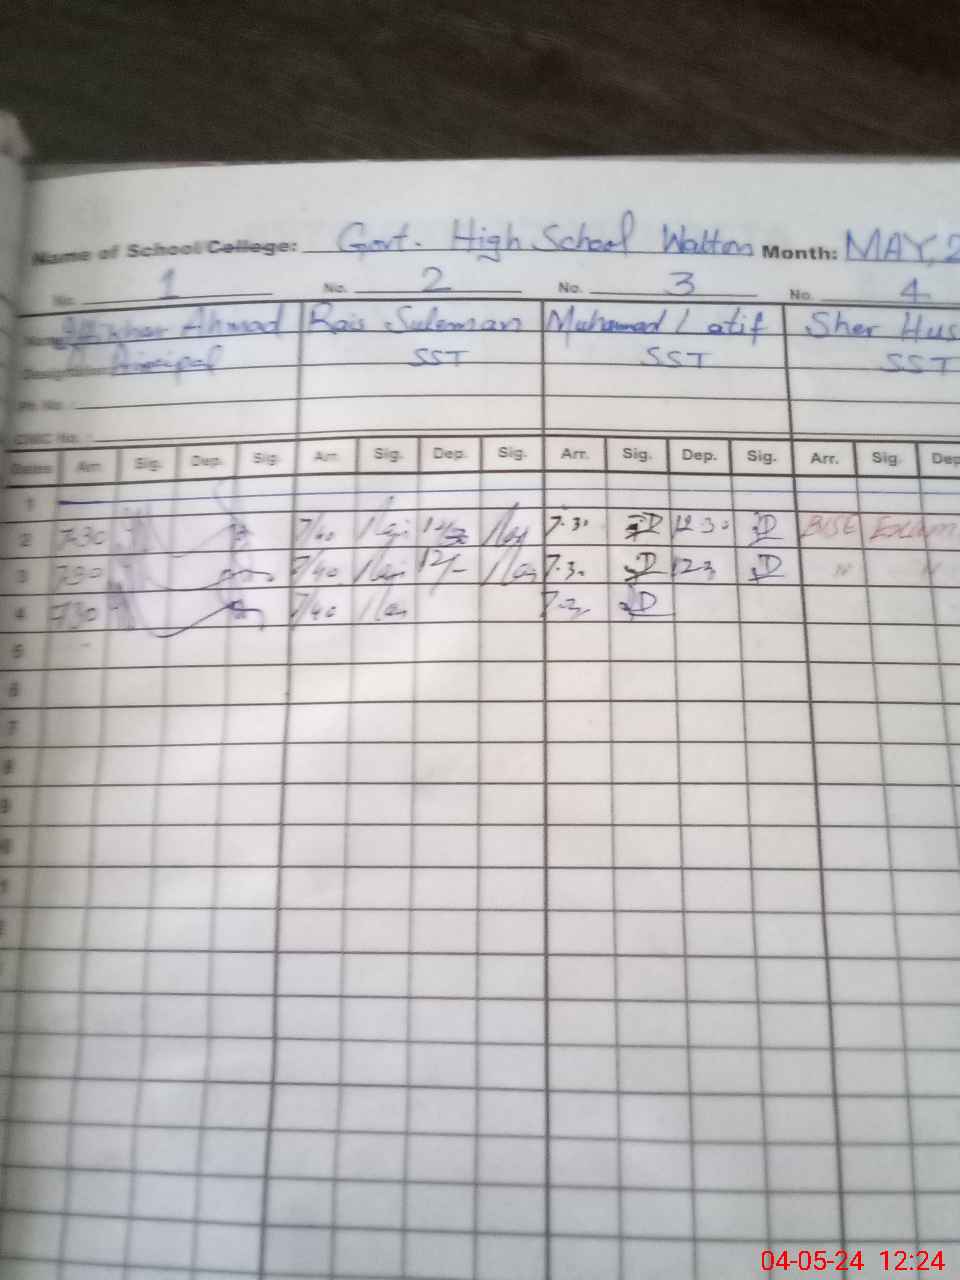 Name of School/College: Govt. High School Walton Month: MAY, 2
No. 1 No. 2 No. 3 No. 4
Ahmad Rais Suleman Muhammad Latif Sher Hus
Principal SST SST SST
Ph No
CNIC No. :
Dates Arr. Sig. Dep. Sig. Arr. Sig. Dep. Sig. Arr. Sig. Dep. Sig. Arr. Sig. Dep
1
2 7.30 7/40 7.30 12.30 BISE Exam
3 7.30 7/40 12/- 7.3. 12.3
4 7.30 7/40
5
6
7
8
9
04-05-24 12:24